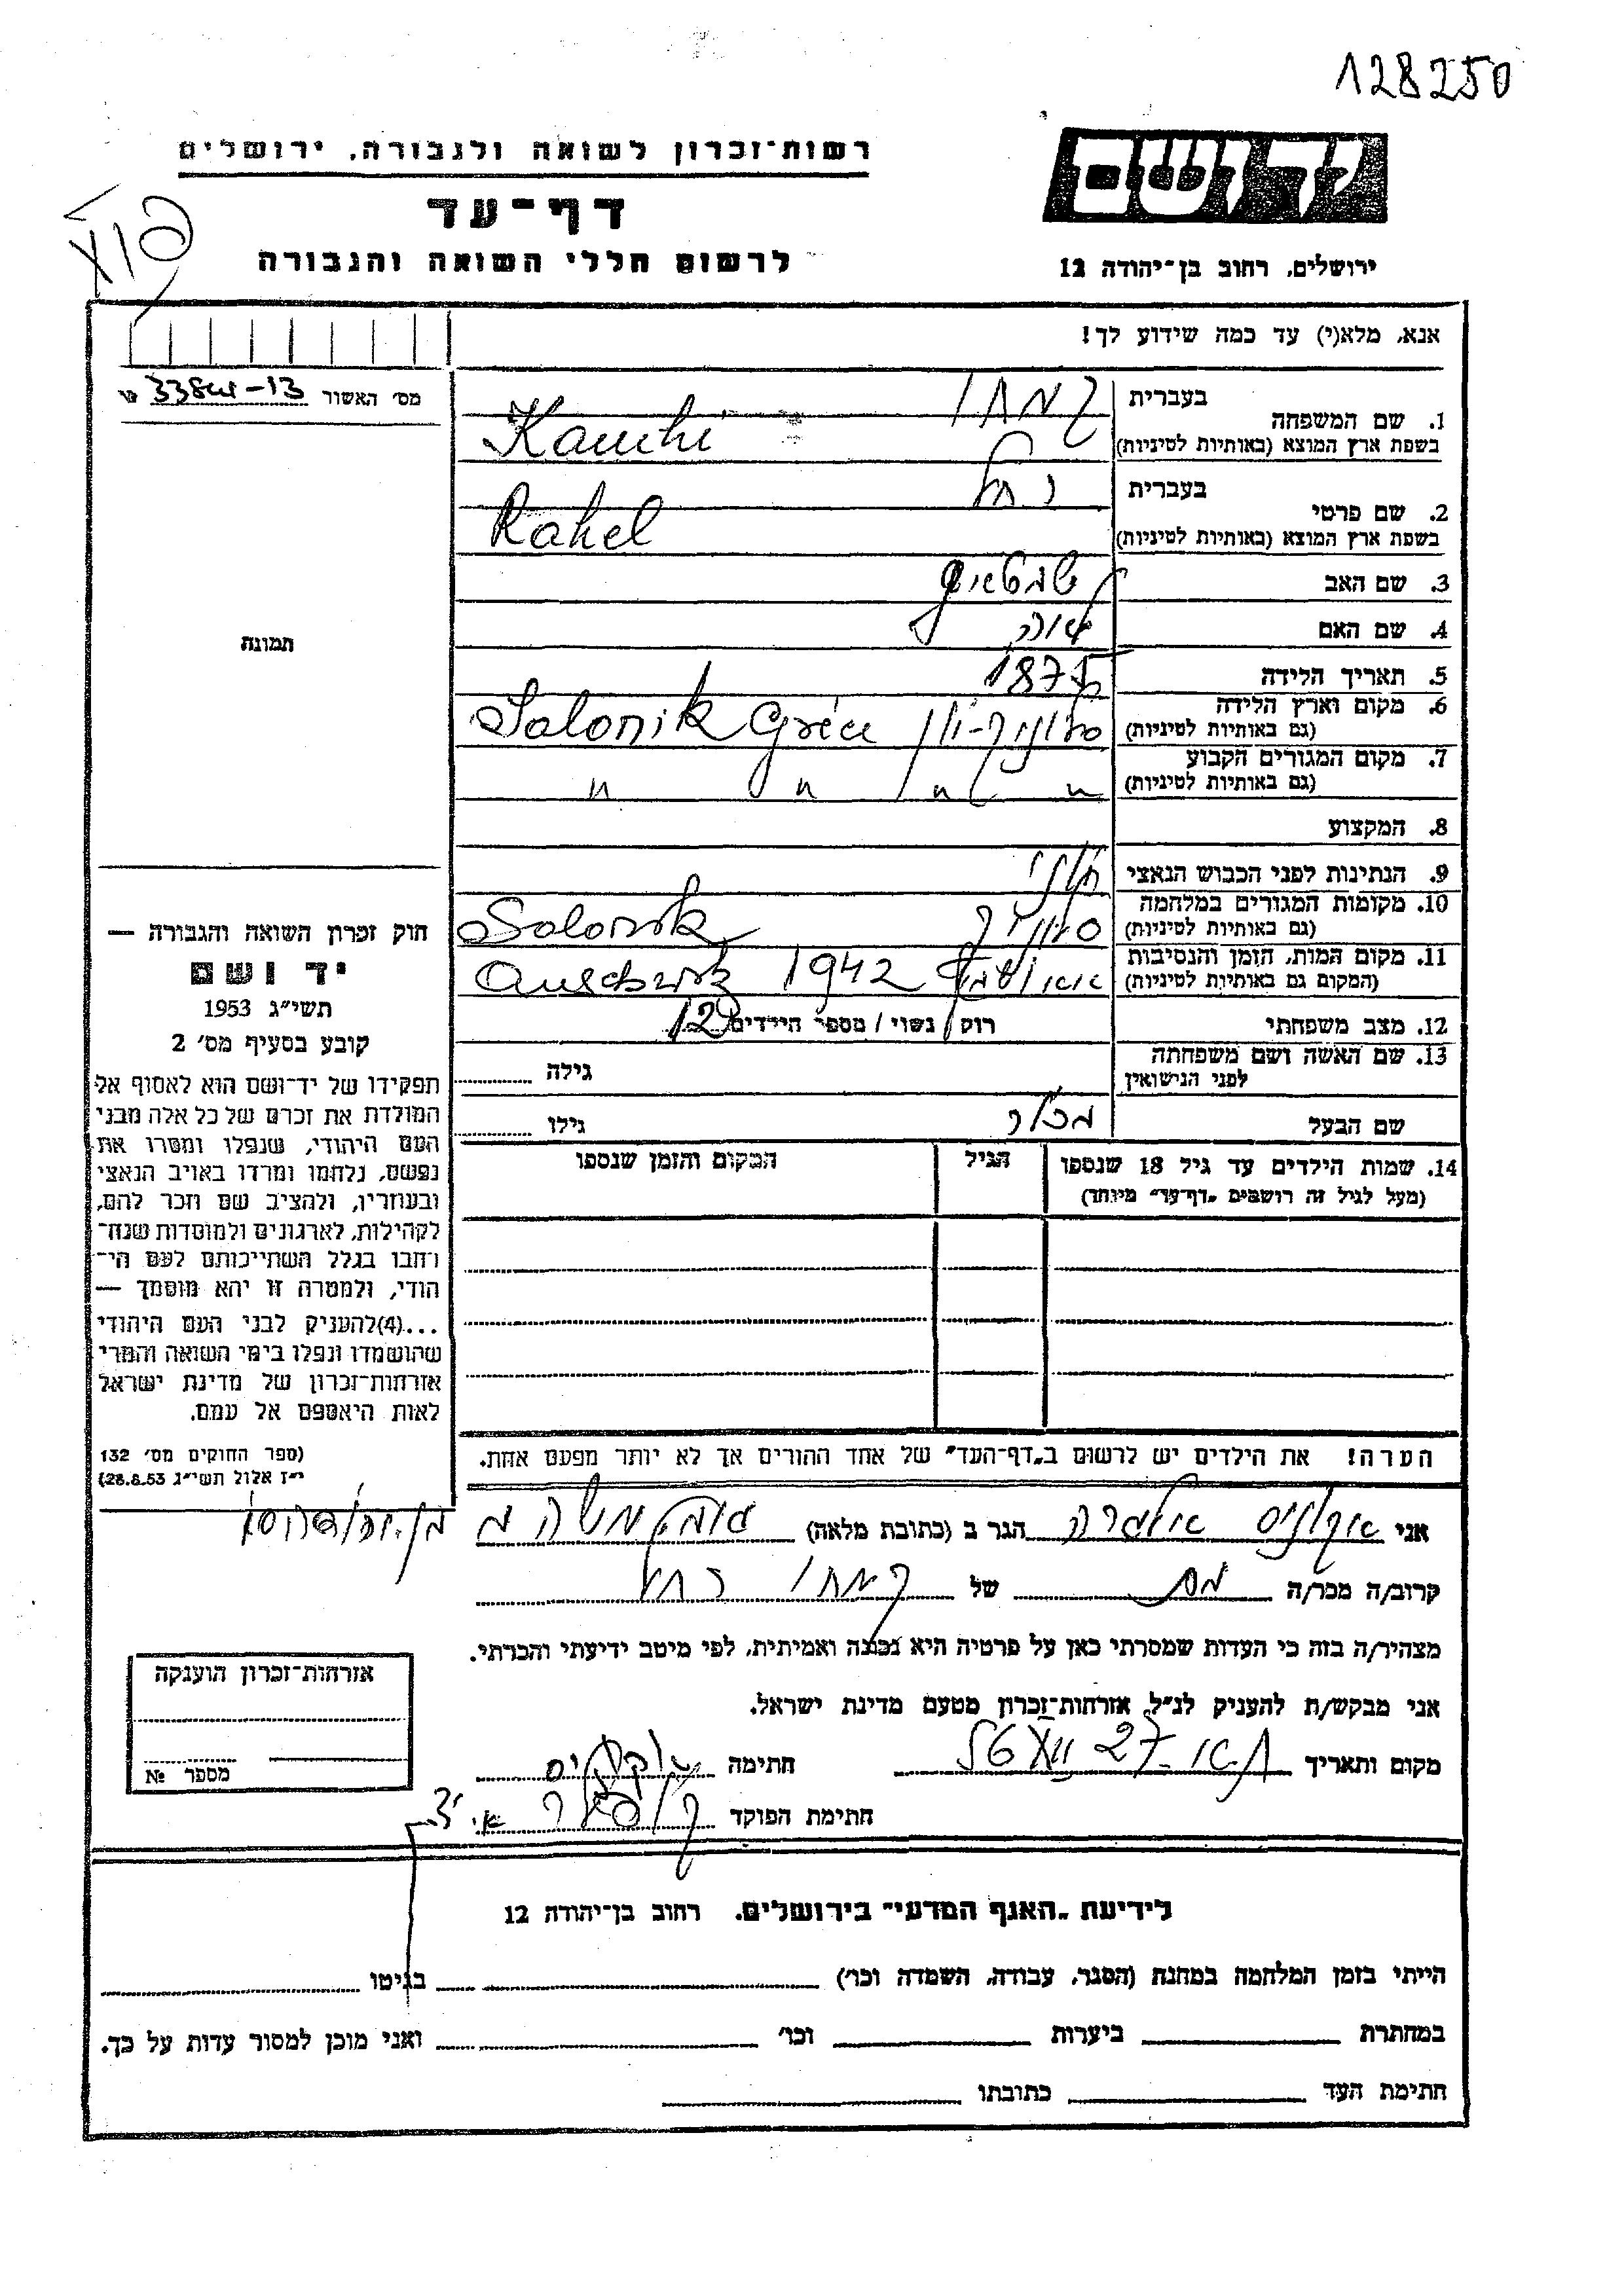 128250
רשות־זכרון לשואה ולגבורה, ירושלים
יד ושם
דף־עד
לרשום חללי השואה והגבורה
ירושלים, רחוב בן־יהודה 12
אנא, מלא(י) עד כמה שידוע לך!
מס׳ האשור
1. שם המשפחה
בעברית קמחי
בשפת ארץ המוצא (באותיות לטיניות) Kamhi
2. שם פרטי
בעברית רחל
בשפת ארץ המוצא (באותיות לטיניות) Rahel
3. שם האב
4. שם האם
5. תאריך הלידה 1875
6. מקום וארץ הלידה (גם באותיות לטיניות) סלוניק־יון Salonik Grèce
7. מקום המגורים הקבוע (גם באותיות לטיניות) " " " "
8. המקצוע
9. הנתינות לפני הכבוש הנאצי יוני
10. מקומות המגורים במלחמה (גם באותיות לטיניות) סלוניק Salonik
11. מקום המות, הזמן והנסיבות (המקום גם באותיות לטיניות) 1942
12. מצב משפחתי רווק / נשוי / מספר הילדים 12
13. שם האשה ושם משפחתה לפני הנישואין גילה
שם הבעל גילו
14. שמות הילדים עד גיל 18 שנספו (מעל לגיל זה רושמים „דף־עד״ מיוחד)
הגיל
המקום והזמן שנספו
הערה! את הילדים יש לרשום ב„דף־העד״ של אחד ההורים אך לא יותר מפעם אחת.
תמונה
חוק זכרון השואה והגבורה —
יד ושם
תשי״ג 1953
קובע בסעיף מס׳ 2
תפקידו של יד־ושם הוא לאסוף אל
המולדת את זכרם של כל אלה מבני
העם היהודי, שנפלו ומסרו את
נפשם, נלחמו ומרדו באויב הנאצי
ובעוזריו, ולהציב שם וזכר להם,
לקהילות, לארגונים ולמוסדות שנח־
רחבו בגלל השתייכותם לעם הי־
הודי, ולמטרה זו יהא מוסמך —
...(4)להעניק לבני העם היהודי
שהושמדו ונפלו בימי השואה והמרי
אזרחות־זכרון של מדינת ישראל
לאות היאספם אל עמם.
(ספר החוקים מס׳ 132
י״ז אלול תשי״ג 28.8.53)
אני הגר ב (כתובת מלאה)
קרוב/ה מכר/ה של קמחי רחל
מצהיר/ה בזה כי העדות שמסרתי כאן על פרטיה היא נכונה ואמיתית, לפי מיטב ידיעתי והכרתי.
אני מבקש/ת להעניק לנ״ל אזרחות־זכרון מטעם מדינת ישראל.
מקום ותאריך חתימה
חתימת הפוקד
אזרחות־זכרון הוענקה
מספר №
לידיעת „האגף המדעי״ בירושלים. רחוב בן־יהודה 12
הייתי בזמן המלחמה במחנה (הסגר, עבודה, השמדה וכו׳) בגיטו
במחתרת ביערות וכו׳ ואני מוכן למסור עדות על כך.
חתימת העד כתובתו